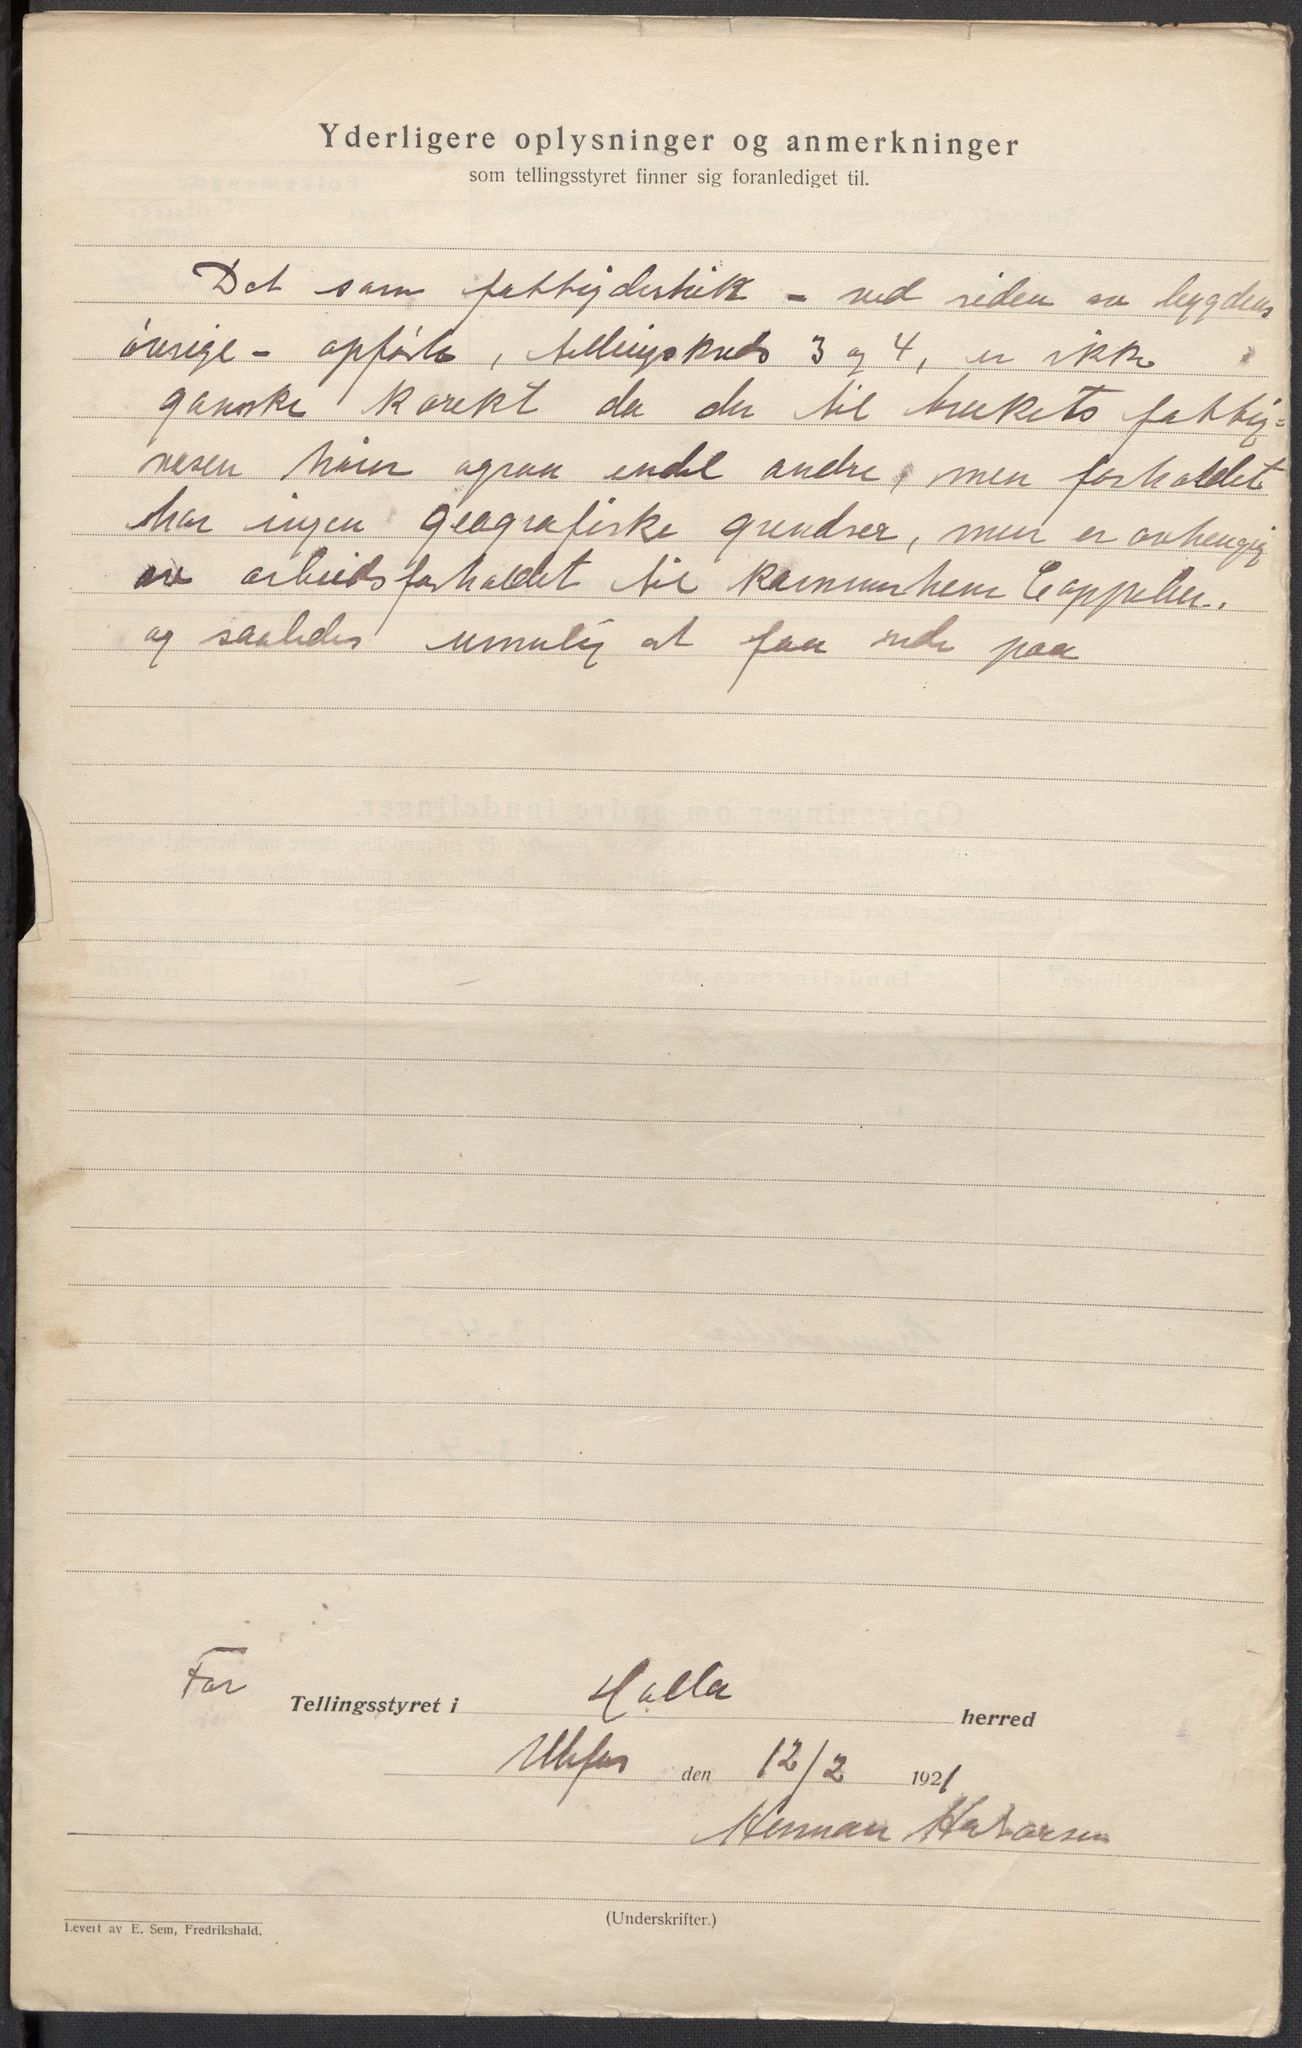 Yderligere oplysninger og anmerkninger
som tellingsstyret finner sig foranlediget til.
Det som fattigdistrikt - ved siden av bygdens
övrige - opförte, tellingskreds 3 og 4, er ikke
ganske korekt da der til brukets fattig=
væsen hörer ogsaa endel andre, men forholdet
har ingen geografiske grendser, men er avhengig
av arbeidsforholdet til kammerherre Cappelen.
og saaledes umulig at faa rede paa
For Tellingsstyret i Holla herred
Ulefos den 12/2 1921
Herman
(Underskrifter.)
Levert av E. Sem, Fredrikshald.